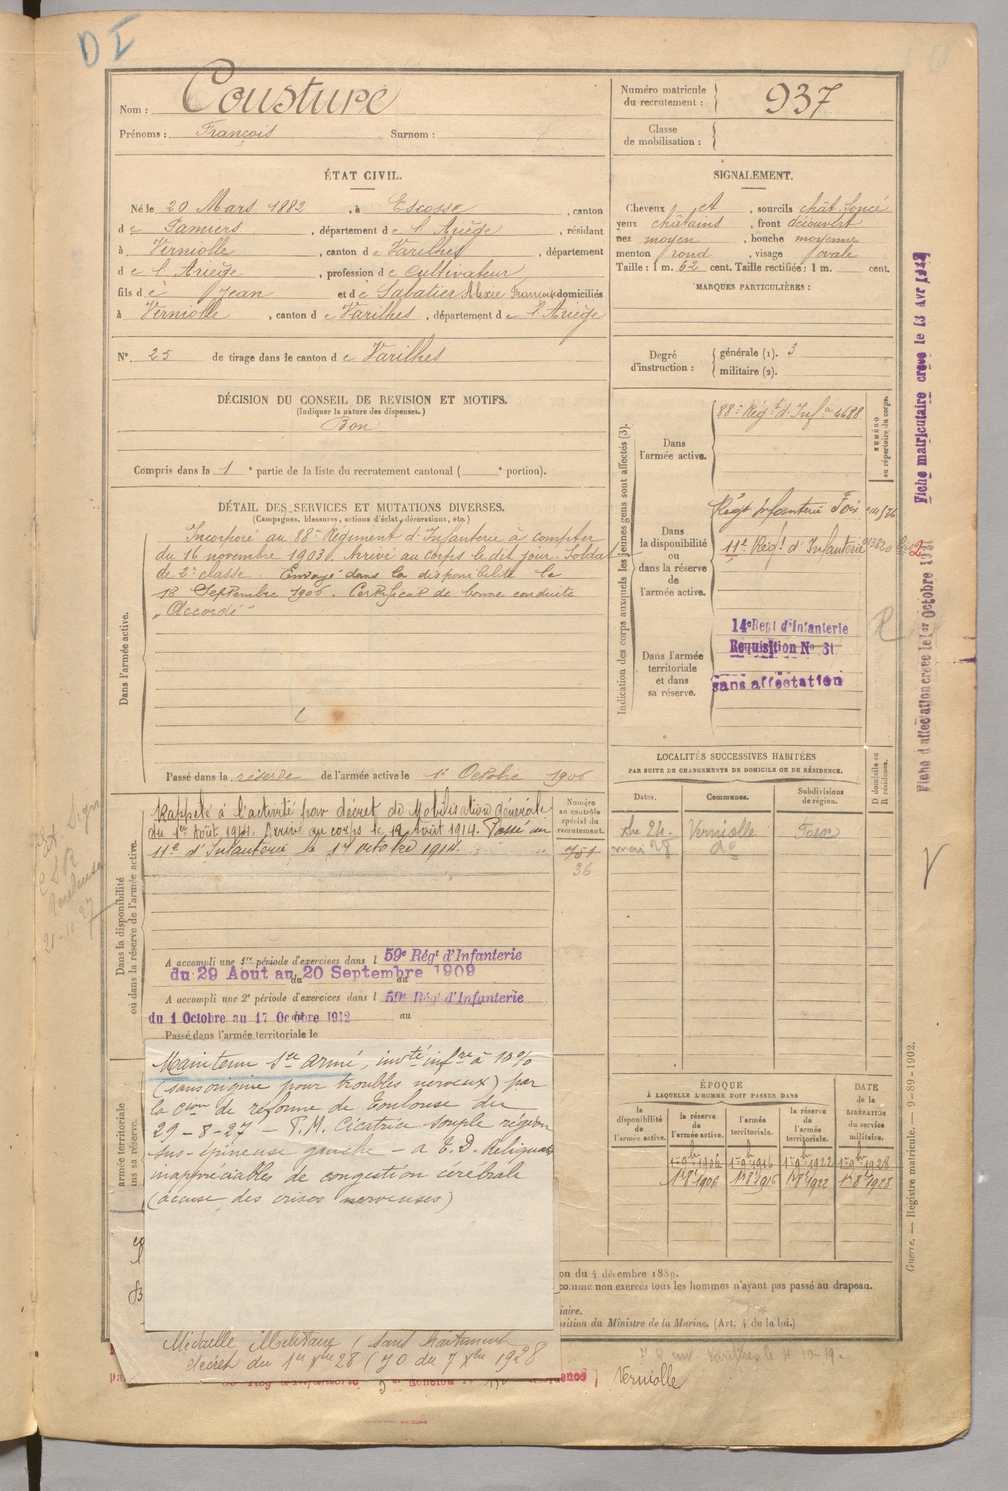 D I
Nom : Cousture
Prénoms : François Surnom :
Numéro matricule du recrutement : 937
Classe de mobilisation :
ÉTAT CIVIL.
Né le 20 Mars 1882, à Escosse, canton
de Pamiers, département de l'Ariège, résidant
à Verniolle, canton de Varilhes, département
de l'Ariège, profession de cultivateur
fils de Jean et de Sabatier Alexie Françoise domiciliés
à Verniolle, canton de Varilhes, département de l'Ariège
N° 25 de tirage dans le canton de Varilhes
SIGNALEMENT.
Cheveux et, sourcils chât. foncé
yeux châtains, front découvert
nez moyen, bouche moyenne
menton rond, visage ovale
Taille : 1 m. 62 cent. Taille rectifiée : 1 m. cent.
MARQUES PARTICULIÈRES :
Degré d'instruction : générale (1). 3
militaire (2).
DÉCISION DU CONSEIL DE REVISION ET MOTIFS.
(Indiquer la nature des dispenses.)
Bon
Compris dans la 1e partie de la liste du recrutement cantonal ( e portion).
DÉTAIL DES SERVICES ET MUTATIONS DIVERSES.
(Campagnes, blessures, actions d'éclat, décorations, etc.)
Dans l'armée active.
Incorporé au 88e Régiment d'Infanterie à compter
du 16 novembre 1903. Arrivé au corps le dit jour. Soldat
de 2e classe. Envoyé dans la disponibilité le
18 Septembre 1906. Certificat de bonne conduite
"Accordé"
Passé dans la réserve de l'armée active le 1er Octobre 1906
Indication des corps auxquels les jeunes gens sont affectés (3).
NUMÉRO au répertoire du corps.
Dans l'armée active.
88e Régt d'Infie 4688
Dans la disponibilité ou dans la réserve de l'armée active.
Régt Infanterie Foix
11e Régt d'Infanterie
Dans l'armée territoriale et dans sa réserve.
14e Regt d'Infanterie
Requisition N° 31
sans affectation
Fiche matriculaire créée le 13 Avr
Fiche d'affectation créée le 1er Octobre 1931
LOCALITÉS SUCCESSIVES HABITÉES
PAR SUITE DE CHANGEMENTS DE DOMICILE OU DE RÉSIDENCE.
Dates. Communes. Subdivisions de région. D domicile ou R résidence.
Verniolle Foix
mai 28 do
Dans la disponibilité ou dans la réserve de l'armée active.
Numéro au contrôle spécial du recrutement.
Rappelé à l'activité par décret de Mobilisation générale
du 1er Août 1914. Arrivé au corps le 12 Août 1914. Passé au
11e d'Infanterie le 17 octobre 1914.
751
36
Toulouse
21-10-27
A accompli une 1re période d'exercices dans l 59e Régt d'Infanterie
du 29 Aout au 20 Septembre 1909
A accompli une 2e période d'exercices dans l 59e Régt d'Infanterie
du 1 Octobre au 17 Octobre 1912
Passé dans l'armée territoriale le
armée territoriale
ns sa réserve.
Maintenu Sce armé, invté infre à 10%
(sans origine pour troubles nerveux) par
la Cion de réforme de Toulouse du
29-8-27 – P.M. Cicatrice souple région
sus-épineuse gauche – a E.D. Reliquats
inappréciables de congestion cérébrale
(accuse des crises nerveuses)
ÉPOQUE
À LAQUELLE L'HOMME DOIT PASSER DANS
DATE de la LIBÉRATION du service militaire.
la disponibilité de l'armée active. la réserve de l'armée active. l'armée territoriale. la réserve de l'armée territoriale.
1er 9bre 1906 1er 9bre 1916 1er 9bre 1922 1er 9bre 1928
1er 8bre 1906 1er 8bre 1916 1er 8bre 1922 1er 8bre 1928
on du 4 décembre 1889.
comme non exercés tous les hommes n'ayant pas passé au drapeau.
iaire.
sition du Ministre de la Marine. (Art. 4 de la loi.)
Guerre. — Registre matricule. — 9-89-1902.
Médaille Militaire (sans traitement
décret du 1er Xbre 28 (JO du 7 Xbre 1928
Verniolle